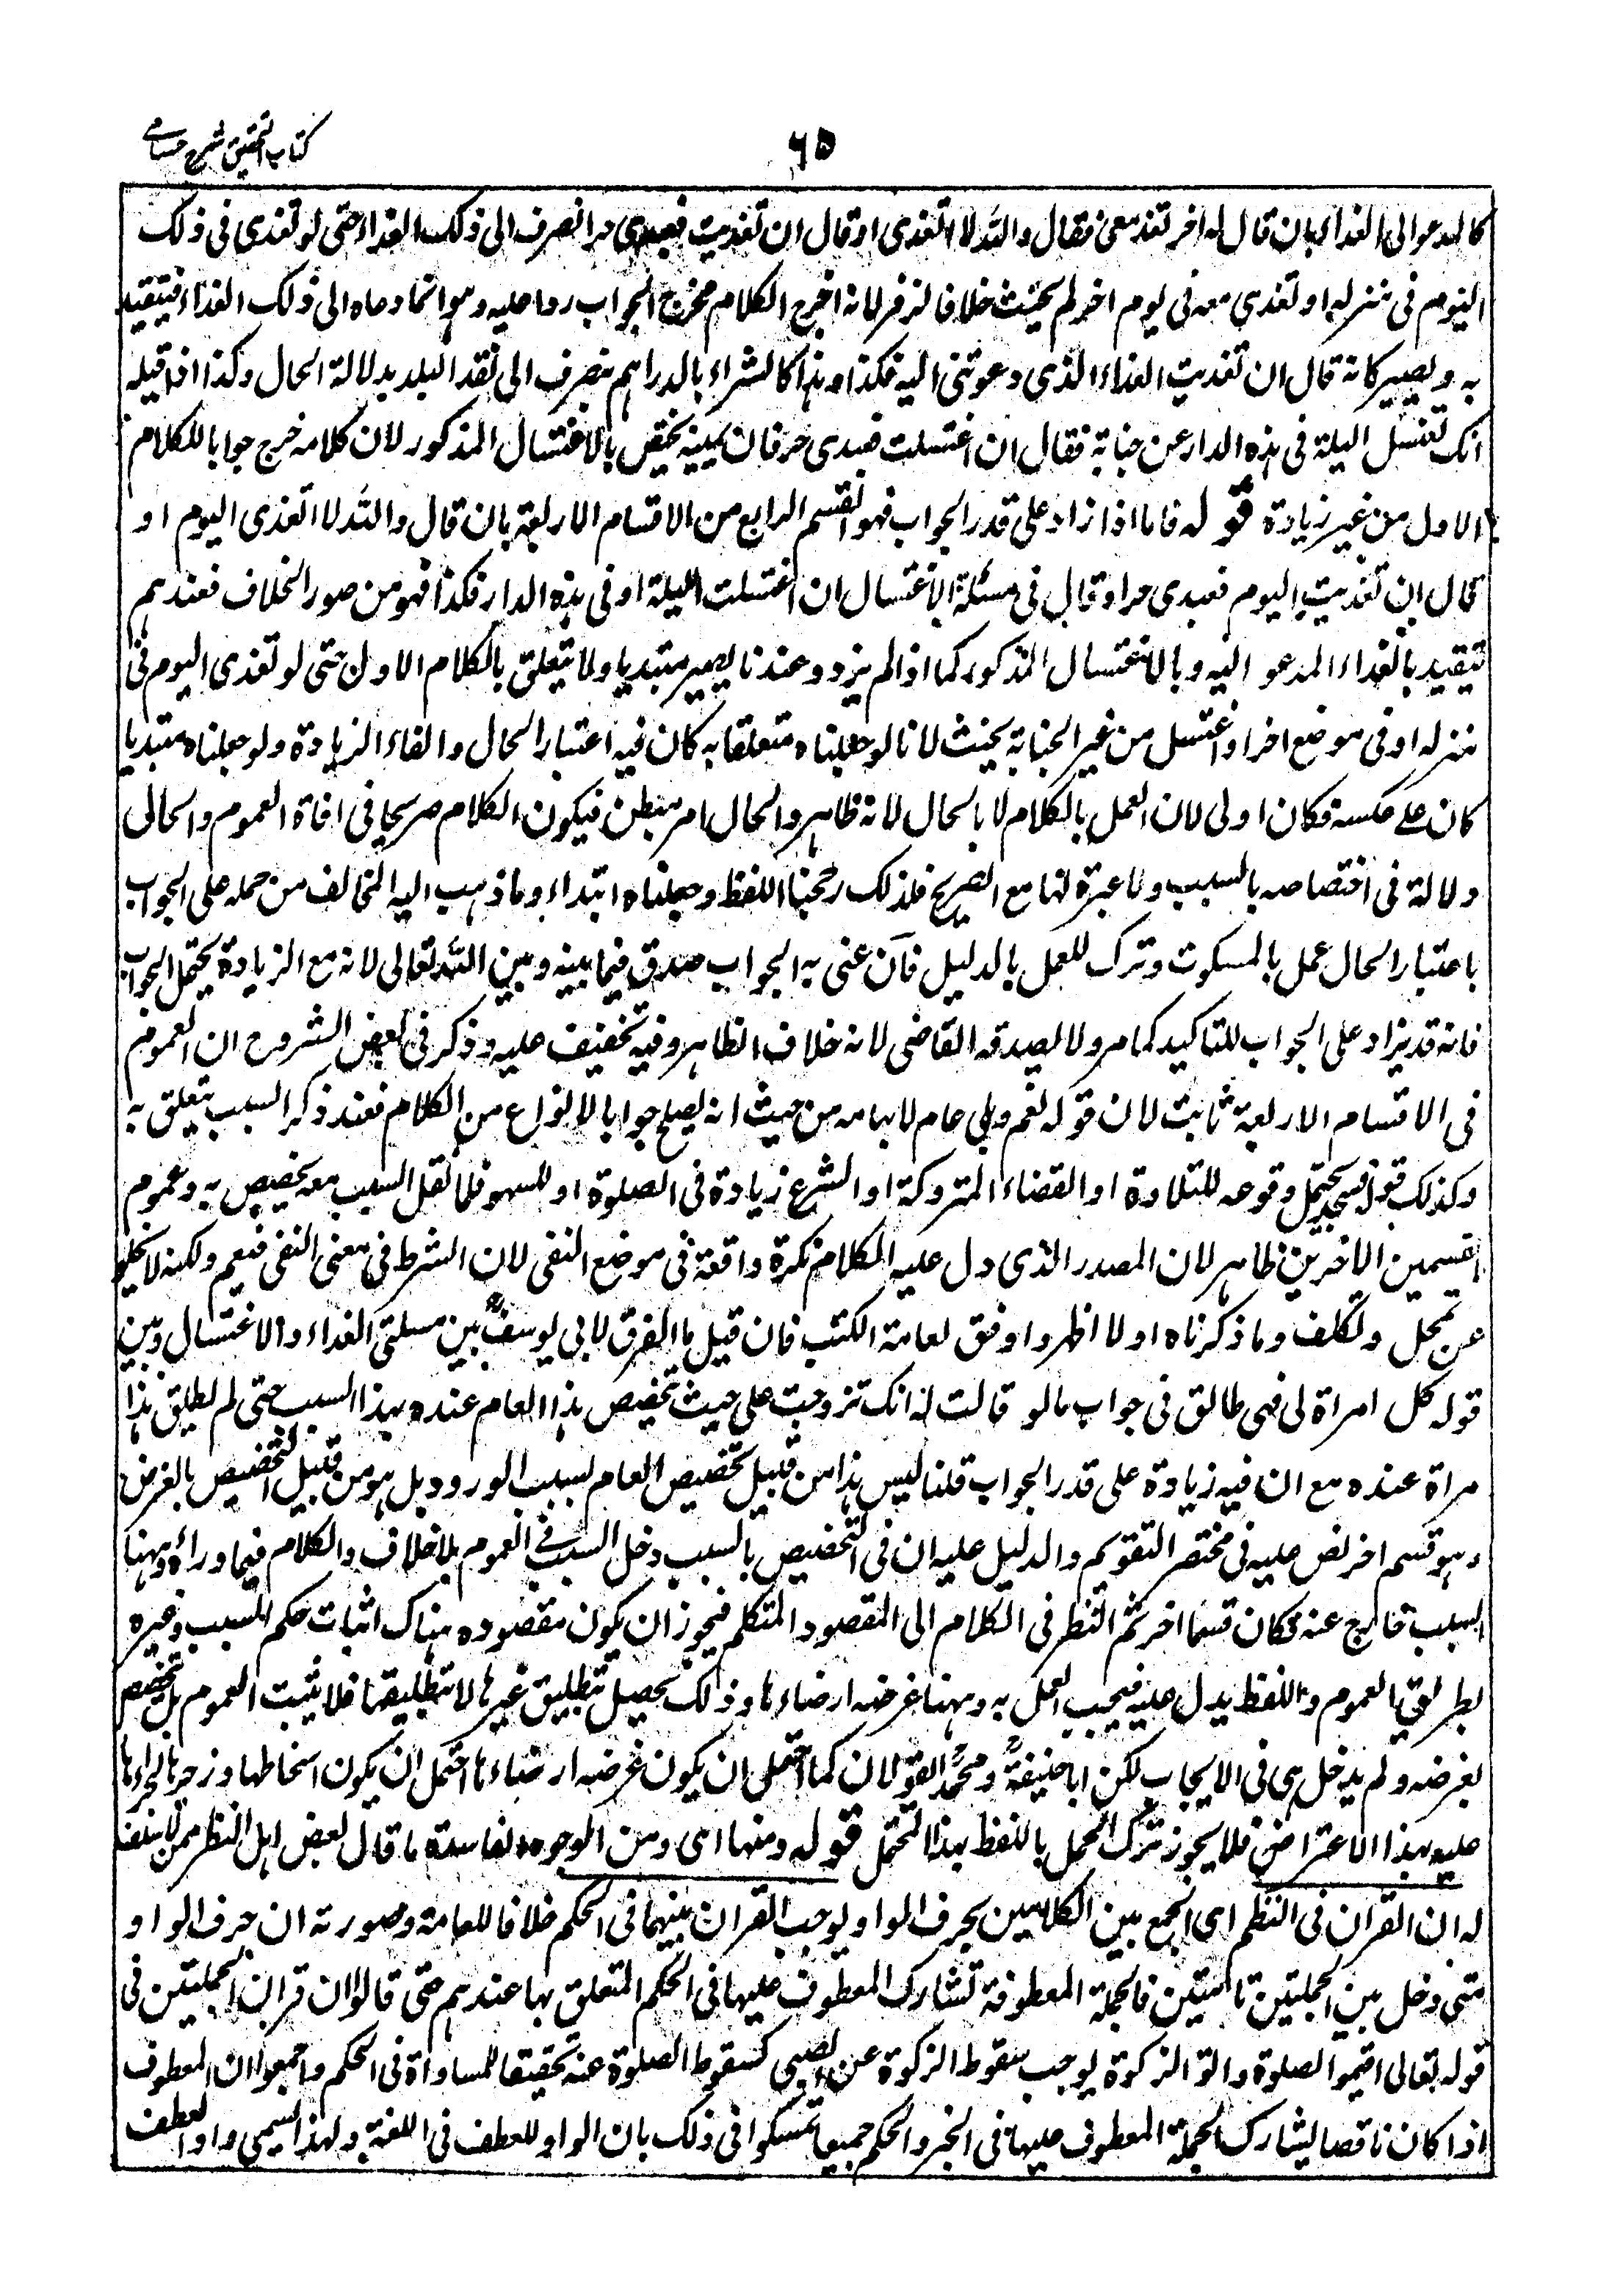 ٦٥
كتاب التحقيق شرح حسامي
كالمدعو الى الغداء بان قال له اخر تغد معى فقال والله لا اتغدى او قال ان تغديت فعبدى حر انصرف الى ذلك الغداء حتى لو تغدى فى ذلك
اليوم فى منزله او تغدى معه فى يوم اخر لم يحنث خلافا لزفر لانه اخرج الكلام مخرج الجواب ردا عليه وهو انما دعاه الى ذلك الغداء فيتقيد
به ويصير كانه قال ان تغديت الغداء الذى دعوتنى اليه فكذا وهذا كالشراء بالدراهم ينصرف الى نقد البلد بدلالة الحال وكذا اذا قيل له
انك تغتسل الليلة فى هذه الدار عن جنابة فقال ان اغتسلت فعبدى حر فان يمينه يختص بالاغتسال المذكور لان كلامه خرج جوابا للكلام
الاول من غير زيادة قوله فاما اذا زاد على قدر الجواب فهو القسم الرابع من الاقسام الاربعة بان قال والله لا اتغدى اليوم او
قال ان تغديت اليوم فعبدى حر او قال فى مسئلة الاغتسال ان اغتسلت الليلة او فى هذه الدار فكذا فهو من صور الخلاف فعندهم
تتقيد بالغداء المدعو اليه وبالاغتسال المذكور كما اذا لم يزد وعندنا يصير مبتديا ولا يتعلق بالكلام الاول حتى لو تغدى اليوم فى
منزله او فى موضع اخر او اغتسل من غير الجنابة يحنث لانا لو جعلناه متعلقا به كان فيه اعتبار الحال والغاء الزيادة ولو جعلناه مبتديا
كان على عكسه فكان اولى لان العمل بالكلام لا بالحال لانه ظاهر والحال امر مبطن فيكون الكلام صريحا فى افادة العموم والحال
دلالة فى اختصاصه بالسبب ولا عبرة لها مع الصريح فلذلك رجحنا اللفظ وجعلناه ابتداء وما ذهب اليه المخالف من حمله على الجواب
باعتبار الحال عمل بالمسكوت وترك للعمل بالدليل فان عنى به الجواب صدق فيما بينه وبين الله تعالى لانه مع الزيادة يحتمل الجواب
فانه قد يزاد على الجواب للتاكيد كما مر ولا يصدقه القاضى لانه خلاف الظاهر وفيه تخفيف عليه وذكر فى بعض الشروح ان العموم
فى الاقسام الاربعة ثابت لان قوله نعم وبلى عام لابهامه من حيث انه يصلح جوابا لانواع من الكلام فعند ذكر السبب يتعلق به
وكذلك قوله فسجد يحتمل وقوعه للتلاوة او القضاء المتروكة او الشرع زيادة فى الصلوة او للسهو فلما نقل السبب معه تخصص به وعموم
القسمين الاخرين ظاهر لان المصدر الذى دل عليه الكلام نكرة واقعة فى موضع النفى لان الشرط فى معنى النفى فيعم ولكنه لا يخلو
عن تمحل وتكلف وما ذكرناه اولا اظهر واوفق لعامة الكتب فان قيل ما الفرق لابى يوسف بين مسئلتى الغداء والاغتسال وبين
قوله كل امراة لى فهى طالق فى جواب ما لو قالت له انك تزوجت على حيث تخصيص هذا العام عنده بهذا السبب حتى لم تطلق هذا
مراة عنده مع ان فيه زيادة على قدر الجواب قلنا ليس هذا من قبيل تخصيص العام بسبب الورود بل هو من قبيل التخصيص بالغرض
وهو قسم اخر نص عليه فى مختصر التقويم والدليل عليه ان فى التخصيص بالسبب دخل السبب فى العموم بلا خلاف والكلام فيما وراءه وههنا
السبب خارج عنه فكان قسما اخر ثم النظر فى الكلام الى المقصود المتكلم فيجوز ان يكون مقصوده هناك اثبات حكم السبب وغيره
بطريق العموم واللفظ يدل عليه فيجب العمل به وههنا غرضه ارضاءها وذلك يحصل بتطليق غيرها لا بتطليقها فلا يثبت العموم بل تخصص
بغرضه ولم يدخل هى فى الايجاب لكن ابا حنيفة ومحمدا يقولان كما احتمل ان يكون غرضه ارضاءها احتمل ان يكون اسخاطها وزجرها لجراءتها
عليه بهذا الاعتراض فلا يجوز ترك العمل باللفظ بهذا المحتمل قوله ومنها اى ومن الوجوه الفاسدة ما قال بعض اهل النظر ممن لا سلف
له ان القران فى النظم اى الجمع بين الكلامين بحرف الواو يوجب القران بينهما فى الحكم خلافا للعامة وصورته ان حرف الواو
متى دخل بين الجملتين تامتين فالجملة المعطوفة تشارك المعطوف عليها فى الحكم المتعلق بها عندهم حتى قالوا ان قران الجملتين فى
قوله تعالى اقيموا الصلوة واتوا الزكوة يوجب سقوط الزكوة عن الصبى كسقوط الصلوة عنه تحقيقا للمساواة فى الحكم واجمعوا ان المعطوف
اذا كان ناقصا يشارك الجملة المعطوف عليها فى الخبر والحكم جميعا تمسكوا فى ذلك بان الواو للعطف فى اللغة ولهذا يسمى واو العطف